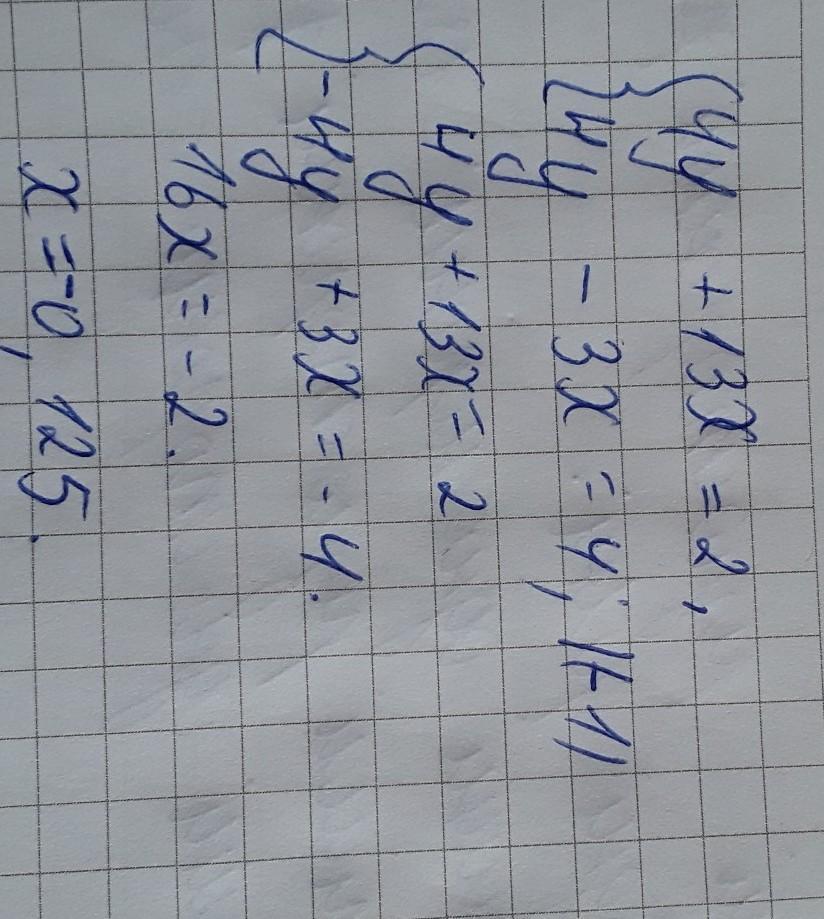 4y + 13x = 2,
4y - 3x = 4; |(-1)
4y + 13x = 2
-4y + 3x = -4.
16x = -2.
x = -0,125.